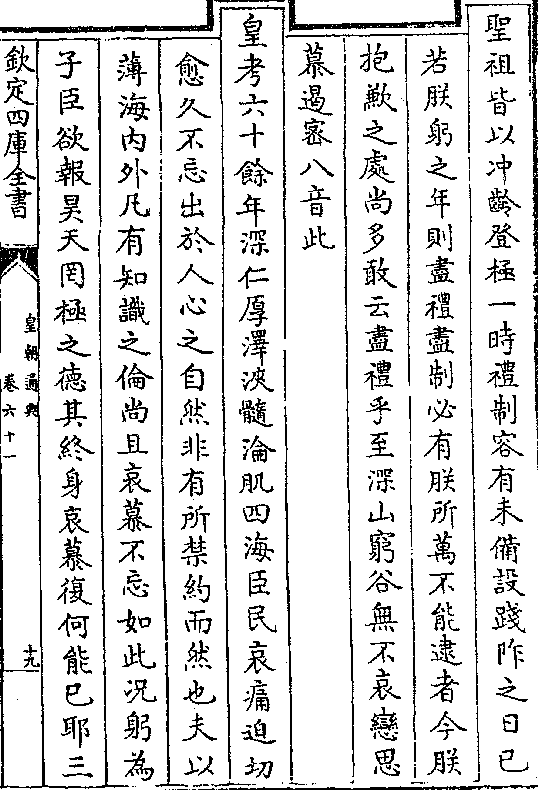 聖祖皆以冲齡登極一時禮制容有未備設踐阼之日已
若朕躬之年則盡禮盡制必有朕所萬不能逮者今朕
抱歉之處尚多敢云盡禮乎至深山窮谷無不哀戀思
慕遏密八音此
皇考六十餘年深仁厚澤浹髓淪肌四海臣民哀痛迫切
愈久不忘出於人心之自然非有所禁約而然也夫以
薄海內外凡有知識之倫尚且哀慕不忘如此况躬為
子臣欲報昊天罔極之德其終身哀慕復何能已耶三
欽定四庫全書
皇朝通典
卷六十一
十九